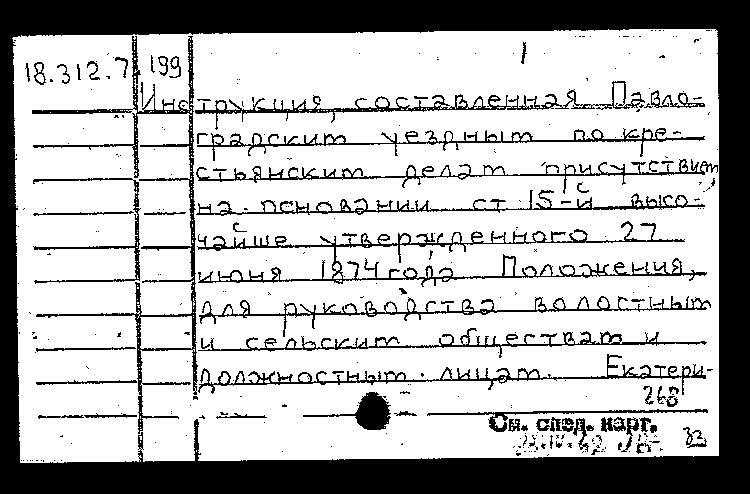 18.312.7 199
Инструкция, составленная Павло-
градским уездным по кре-
стьянским делам присутствием
на основании ст 15-й высо-
чайше утвержденного 27
июня 1874 года Положения,
для руководства волостным
и сельским обществам и
должностным лицам. Екатери-
268
См. спед. карт.
33